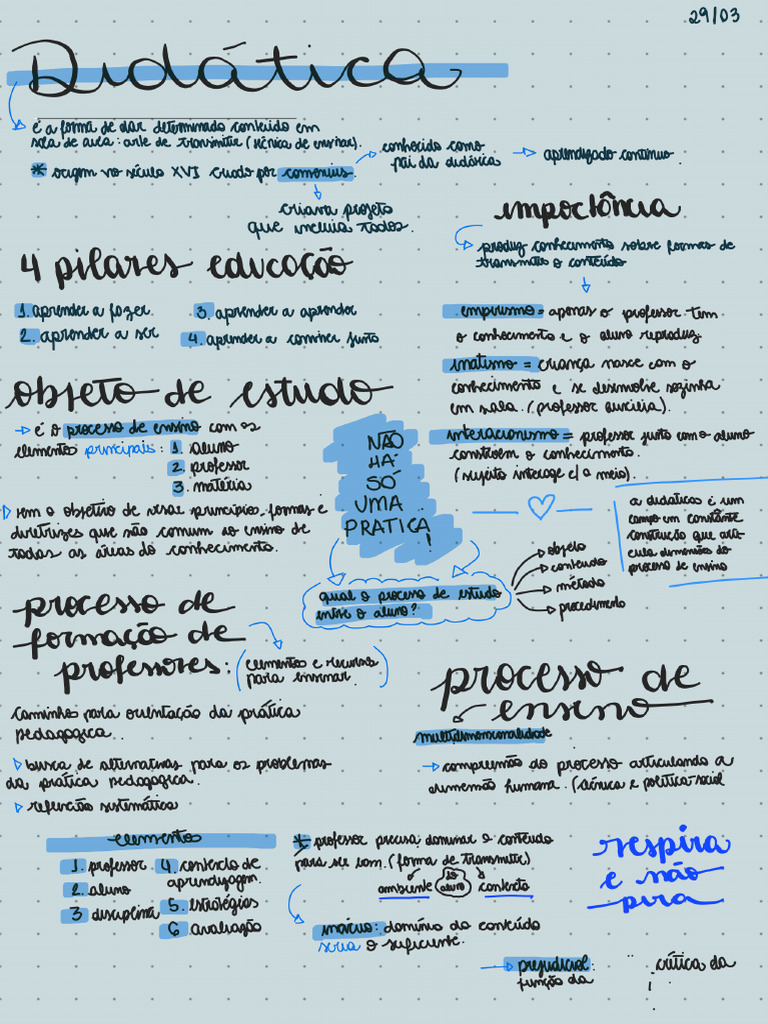 29/03
Didática
é a forma de dar determinado conteúdo em
sala de aula: arte de transmitir (técnica de ensinar).
* origem no século XVI criado por comenius.
conhecido como
pai da didática
aprendizado contínuo.
criava projeto
que incluia todos.
importância
produz conhecimento sobre formas de
transmitir o conteúdo
4 pilares educação
1. aprender a fazer.
2. aprender a ser
3. aprender a aprender
4. aprender a conviver junto
empirismo = apenas o professor tem
o conhecimento e o aluno reproduz.
inatismo = criança nasce com o
conhecimento e se desenvolve sozinha
em sala. (professor auxilia).
interacionismo = professor junto com o aluno
constroem o conhecimento.
(sujeito interage c/ a meio).
objeto de estudo
é o processo de ensino com os
elementos principais: 1. aluno
2. professor
3. matéria
tem o objetivo de visar princípios, formas e
diretrizes que são comum ao ensino de
todas as áreas do conhecimento.
NÃO
HÁ
SÓ
UMA
PRATICA!
qual o processo de estudo
entre o aluno?
objeto
conteudo
método
procedimento
a didatica é um
campo em constante
construção que arti-
cula dimensões do
processo de ensino
processo de
formação de
professores:
(elementos e recursos
para ensinar)
caminhos para orientação da prática
pedagogica.
busca de alternativas para os problemas
da prática pedagogica.
reflexão sistemática
processo de
ensino
multidimensionalidade
compreensão do processo articulando a
dimensão humana. (técnica e politica-social
elementos
1. professor
2. aluno
3 disciplina
4. contexto de
aprendizagem.
5. estratégias
6 avaliação
* professor precisa dominar o conteúdo
para ser bom. (forma de transmitir)
ambiente
aluno
contexto
início: domínio do conteúdo
seria o suficiente.
respira
e não
pira
prejudicial:
função da
crítica da